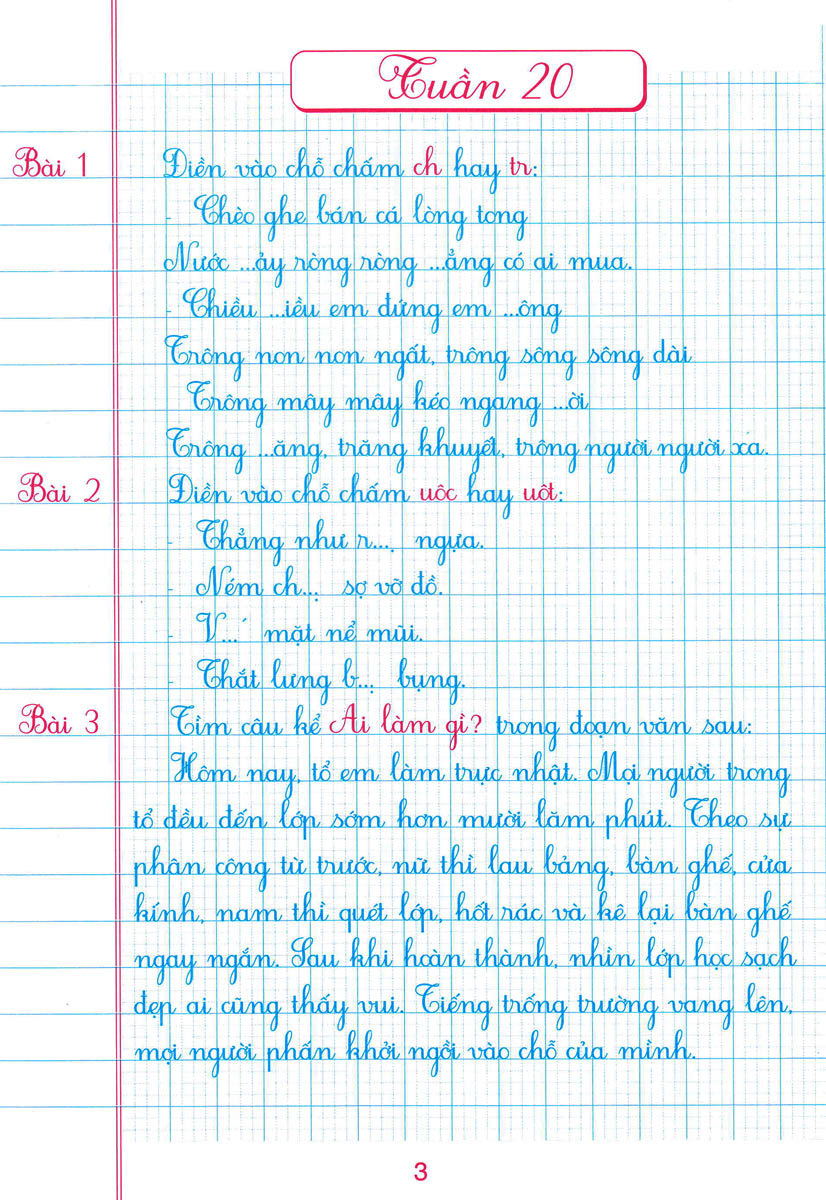 Tuần 20
Bài 1 Điền vào chỗ chấm ch hay tr:
- Chèo ghe bán cá lòng tong
Nước ...ảy ròng ròng ...ẳng có ai mua.
- Chiều ...iều em đứng em ...ông
Trông non non ngất, trông sông sông dài
Trông mây mây kéo ngang ...ời
Trông ...ăng, trăng khuyết, trông người người xa.
Bài 2 Điền vào chỗ chấm uôc hay uôt:
- Thẳng như r...̣ ngựa.
- Ném ch...̣ sợ vỡ đồ.
- V...́ mặt nể mũi.
- Thắt lưng b...̣ bụng.
Bài 3 Tìm câu kể Ai làm gì? trong đoạn văn sau:
Hôm nay, tổ em làm trực nhật. Mọi người trong
tổ đều đến lớp sớm hơn mười lăm phút. Theo sự
phân công từ trước, nữ thì lau bảng, bàn ghế, cửa
kính, nam thì quét lớp, hốt rác và kê lại bàn ghế
ngay ngắn. Sau khi hoàn thành, nhìn lớp học sạch
đẹp ai cũng thấy vui. Tiếng trống trường vang lên,
mọi người phấn khởi ngồi vào chỗ của mình.
3